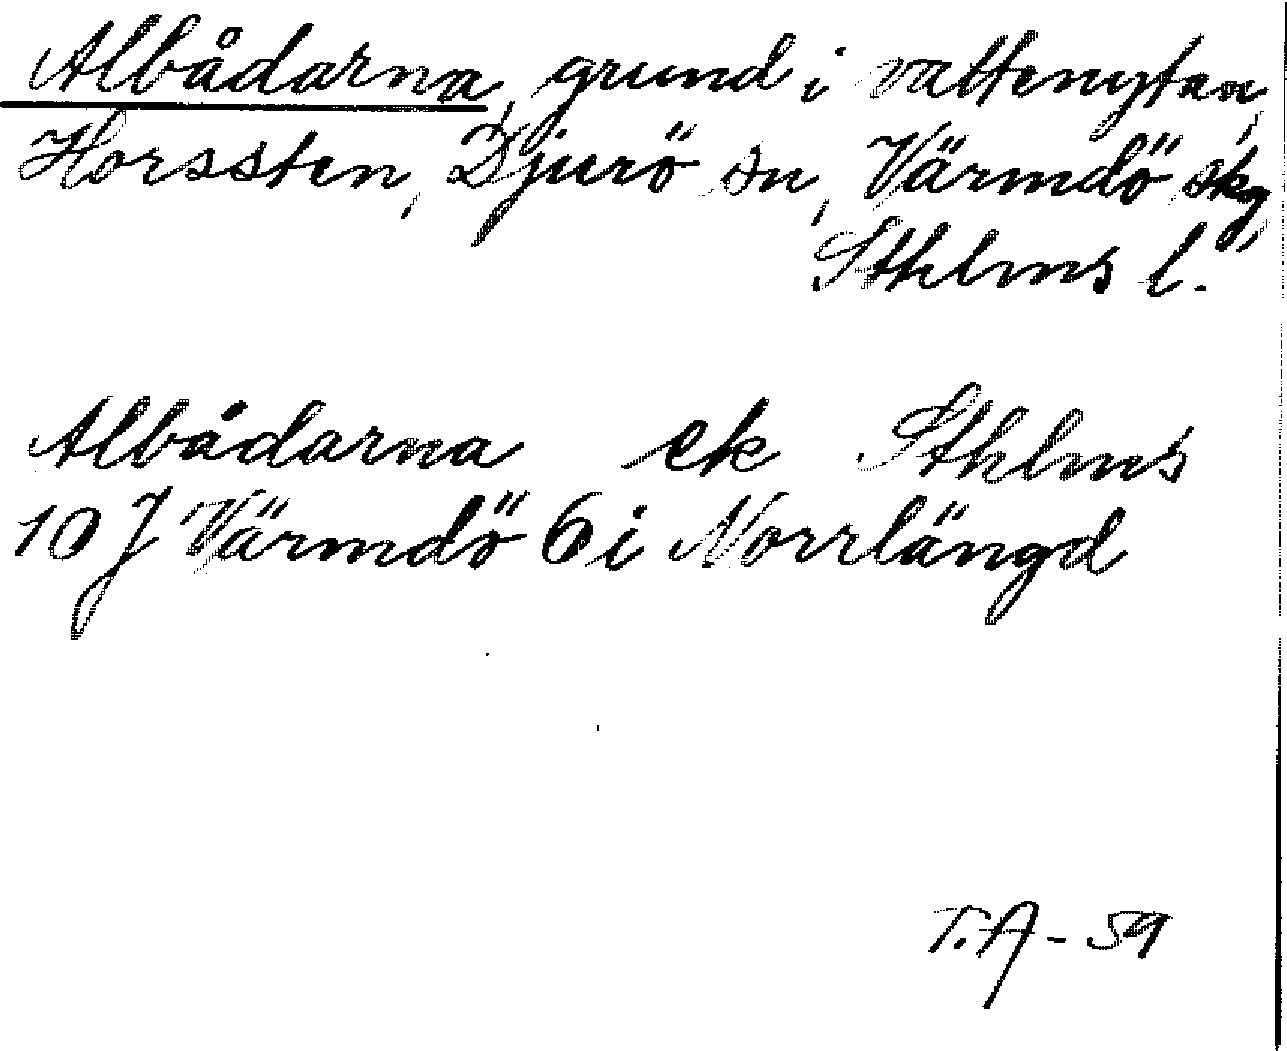 Albådarna, grund i vattenytan,
Horssten, Djurö sn, Värmdö skg,
Sthlms l.
Albådarna ek Sthlms
10 J Värmdö 6 i Norrlängd
T.A - 59